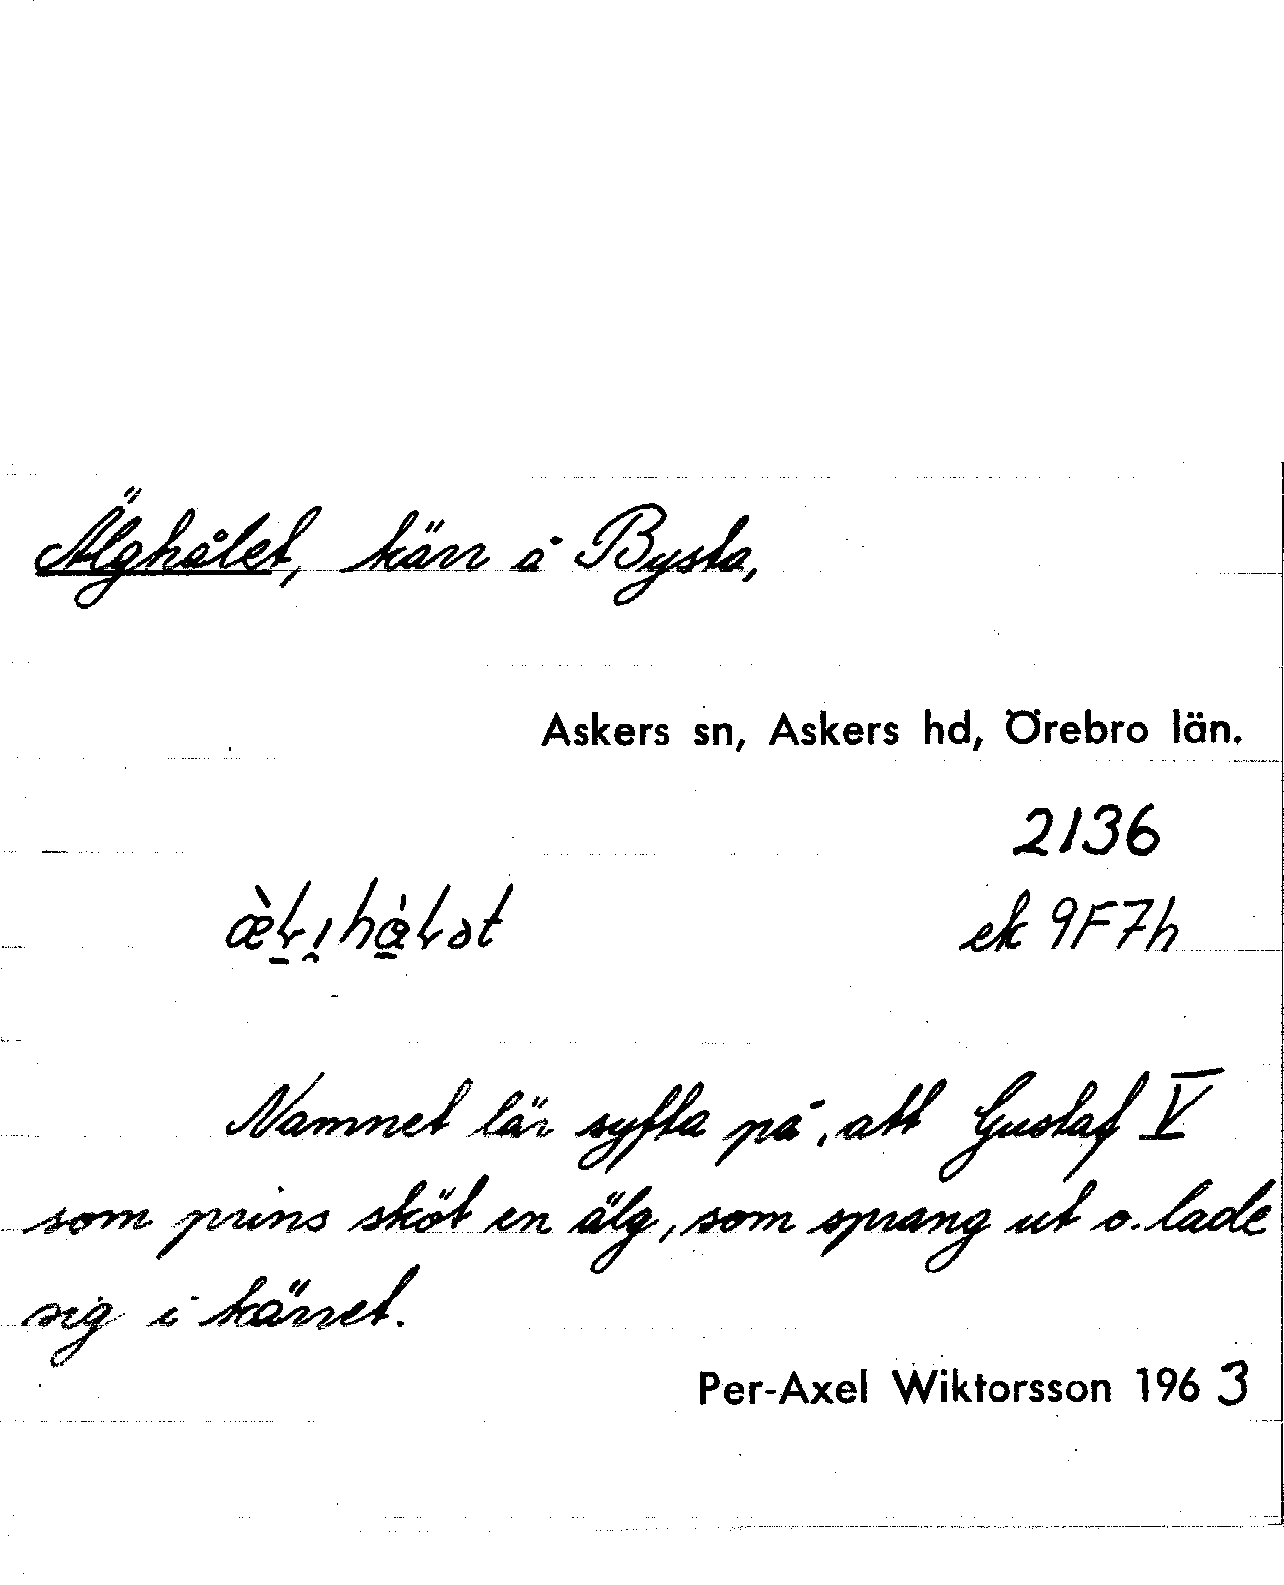 Älghålet, kärr å Bysta,
Askers sn, Askers hd, Örebro län.
2136
ek 9F7h
Namnet lär syfta på, att Gustaf V
som prins sköt en älg, som sprang ut o. lade
sig i kärret.
Per-Axel Wiktorsson 1963